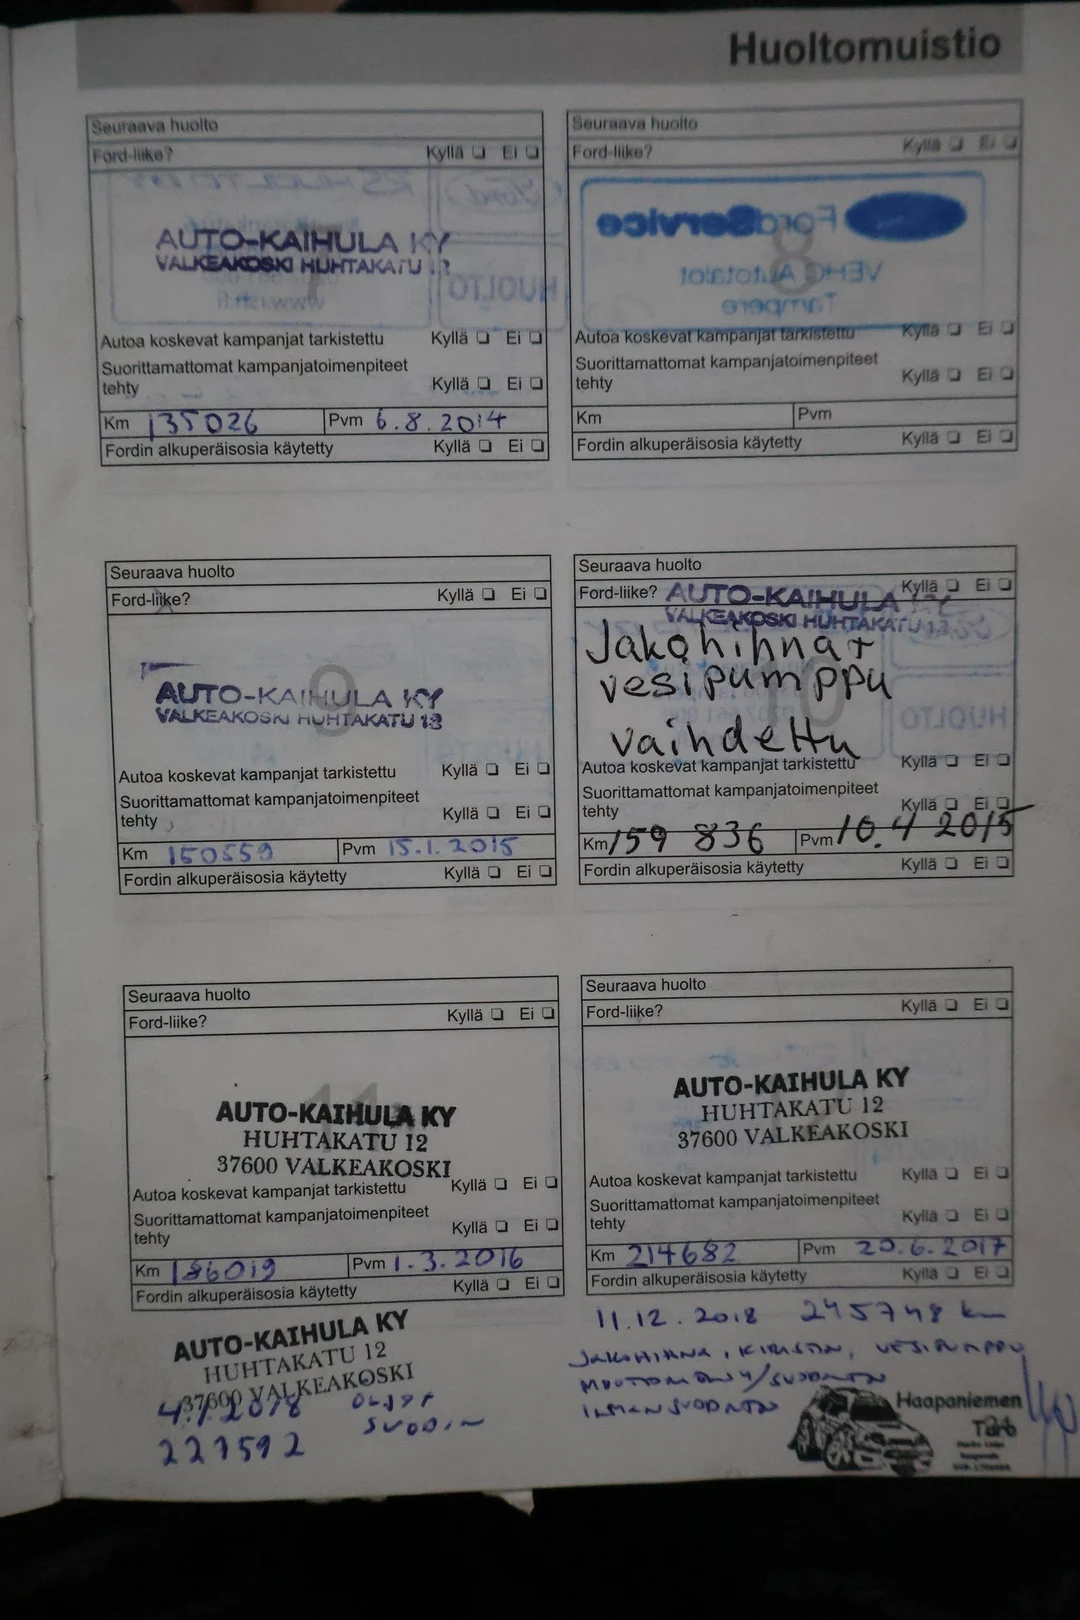 Huoltomuistio
Seuraava huolto
Ford-liike? Kyllä ❏ Ei ❏
AUTO-KAIHULA KY
VALKEAKOSKI HUHTAKATU
Autoa koskevat kampanjat tarkistettu Kyllä ❏ Ei ❏
Suorittamattomat kampanjatoimenpiteet
tehty Kyllä ❏ Ei ❏
Km 135026 Pvm 6.8.2014
Fordin alkuperäisosia käytetty Kyllä ❏ Ei ❏
Seuraava huolto
Ford-liike? Kyllä ❏ Ei ❏
8
FordService
VEHO Autotalot
Tampere
Autoa koskevat kampanjat tarkistettu Kyllä ❏ Ei ❏
Suorittamattomat kampanjatoimenpiteet
tehty Kyllä ❏ Ei ❏
Km Pvm
Fordin alkuperäisosia käytetty Kyllä ❏ Ei ❏
Seuraava huolto
Ford-liike? Kyllä ❏ Ei ❏
9
AUTO-KAIHULA KY
VALKEAKOSKI HUHTAKATU 12
Autoa koskevat kampanjat tarkistettu Kyllä ❏ Ei ❏
Suorittamattomat kampanjatoimenpiteet
tehty Kyllä ❏ Ei ❏
Km 150559 Pvm 15.1.2015
Fordin alkuperäisosia käytetty Kyllä ❏ Ei ❏
Seuraava huolto
Ford-liike? Kyllä ❏ Ei ❏
AUTO-KAIHULA KY
VALKEAKOSKI HUHTAKATU 12
Jakohihnat
vesipumppu
vaihdettu
Autoa koskevat kampanjat tarkistettu Kyllä ❏ Ei ❏
Suorittamattomat kampanjatoimenpiteet
tehty Kyllä ❏ Ei ❏
Km 159 836 Pvm 10.4 2015
Fordin alkuperäisosia käytetty Kyllä ❏ Ei ❏
Seuraava huolto
Ford-liike? Kyllä ❏ Ei ❏
11
AUTO-KAIHULA KY
HUHTAKATU 12
37600 VALKEAKOSKI
Autoa koskevat kampanjat tarkistettu Kyllä ❏ Ei ❏
Suorittamattomat kampanjatoimenpiteet
tehty Kyllä ❏ Ei ❏
Km 186019 Pvm 1.3.2016
Fordin alkuperäisosia käytetty Kyllä ❏ Ei ❏
Seuraava huolto
Ford-liike? Kyllä ❏ Ei ❏
AUTO-KAIHULA KY
HUHTAKATU 12
37600 VALKEAKOSKI
Autoa koskevat kampanjat tarkistettu Kyllä ❏ Ei ❏
Suorittamattomat kampanjatoimenpiteet
tehty Kyllä ❏ Ei ❏
Km 214682 Pvm 20.6.2017
Fordin alkuperäisosia käytetty Kyllä ❏ Ei ❏
AUTO-KAIHULA KY
HUHTAKATU 12
37600 VALKEAKOSKI
4.1.2018 ÖLJYT
SUODIN
227592
11.12.2018 245748 km
JAKOHIHNA, KIRISTIN, VESIPUMPPU
MOOTTORIÖLJY/SUODATIN
ILMANSUODATIN
Haapaniemen